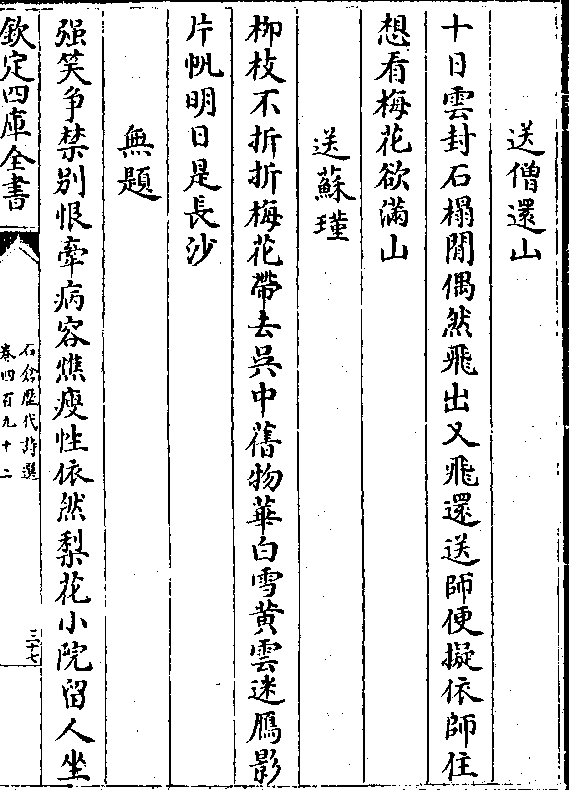 送僧還山
十日雲封石榻閒偶然飛出又飛還送師便擬依師住
想看梅花欲滿山
送蘇瑾
柳枝不折折梅花帶去吳中舊物華白雪黄雲迷鴈影
片帆明日是長沙
無題
强笑争禁别恨牽病容憔瘦性依然梨花小院留人坐
欽定四庫全書
石倉歷代詩選
卷四百九十二
三十七